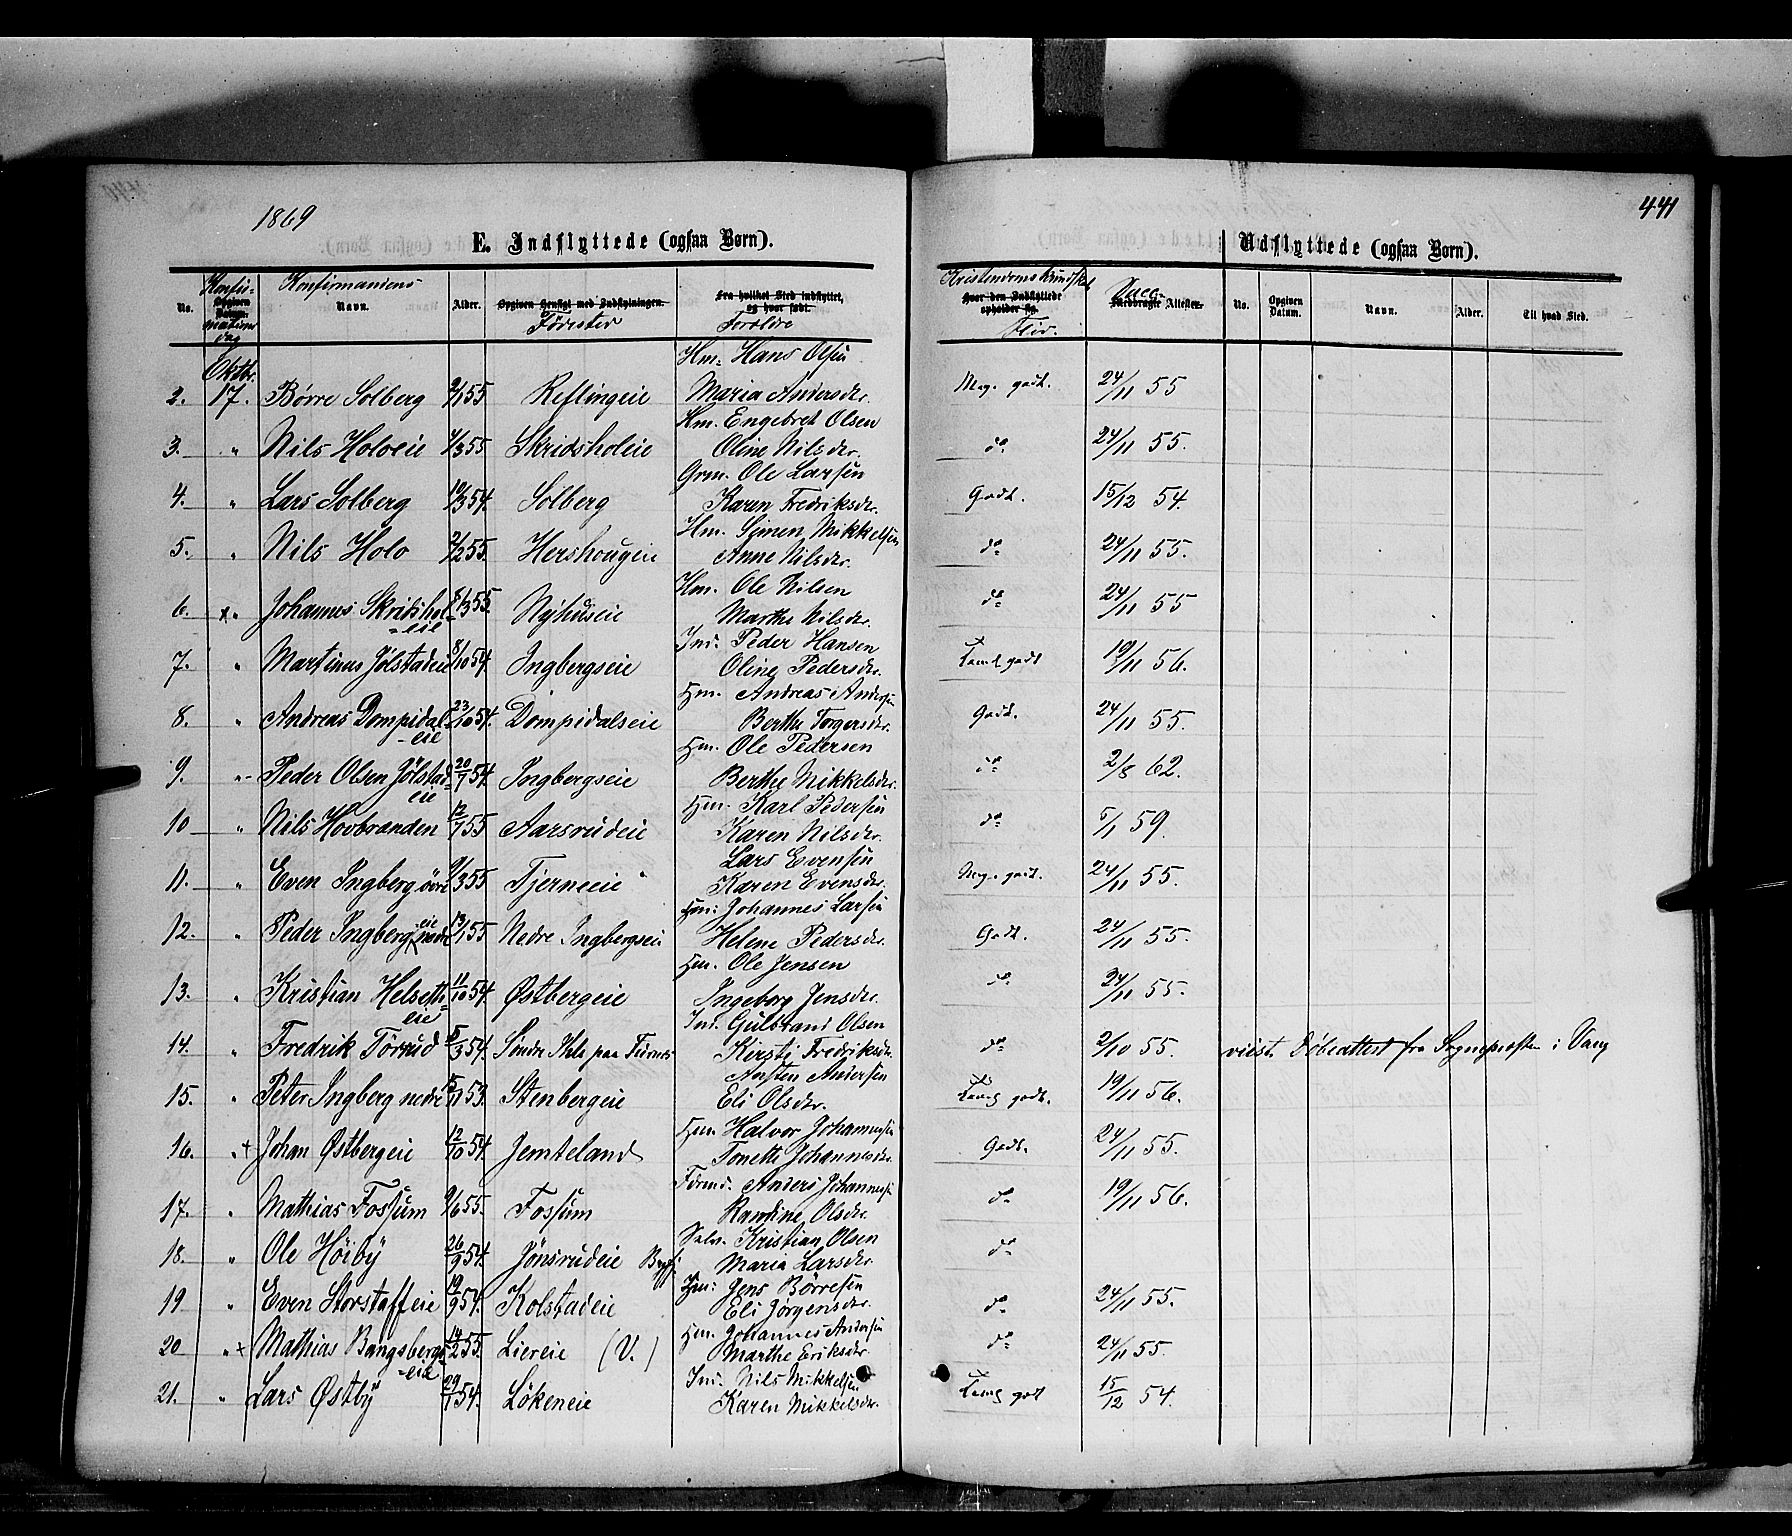 1869
441
E. Indflyttede (ogsaa Børn).
Udflyttede (ogsaa Børn).
No. Opgiven Datum. Navn. Alder. Opgiven Hensigt med Indflytningen. Fra hvilket Sted indflyttet, og hvor født. Hvor den Indflyttede opholder sig. Medbragte Attester. No. Opgiven Datum. Navn. Alder. Til hvad Sted.
Konfirmations dag Konfirmandens Fødested Foreldre Kristendomskundskab Flid. Vacc.
Oktbr. Hm. Hans Olsen
2. 17. Børre Solberg 9/1 55 Reflingeie Maria Andersdr. Meg. godt. 24/11 55
Hm. Engebret Olsen
3. " Nils Holoeie 1/3 55 Skridsholeie Oline Nilsdr. do 24/11 55.
Grm. Ole Larsen
4. " Lars Solberg 10/3 54. Solberg Karen Fredriksdr. Godt. 15/12 54.
Hm. Simen Mikkelsen
5. " Nils Holo 2/2 55. Hershougeie Anne Nilsdr. do 24/11 55.
Hm. Ole Nilsen
6. x " Johannes Skridshol- 8/3 55. Nyhuseie Marthe Nilsdr. do 24/11 55
eie
Ind. Peder Hansen
7. " Martinus Jølstadeie 8/10 54. Ingbergseie Oline Pedersdr. Temel godt 19/11 56.
Hm. Andreas Andersen
8. " Andreas Dompidal- 23/10 54. Dompidalseie Berthe Torgersdr. Godt. 24/11 55.
eie
Hm. Ole Pedersen
9. " Peder Olsen Jølstad- 20/7 54. Ingbergseie Berthe Mikkelsdr. do 2/8 62.
eie
Hm. Karl Pedersen
10 " Nils Hovbranden 12/7 55 Aarsrudeie Karen Nilsdr. do 5/1 59.
Lars Evensen
11. " Even Ingberg øvre 9/3 55 Tjerneeie Karen Evensdr. Meg. godt. 24/11 55.
Hm. Johannes Larsen
12. " Peder Ingbergeie nedre 13/1 55 Nedre Ingbergseie Helene Pedersdr. Godt. 24/11 55.
Hm. Ole Jensen
13. " Kristian Helseth- 11/10 54. Østbergeie Ingeborg Jensdr. do 24/11 55.
eie
Ind. Gulbrand Olsen
14. " Fredrik Torrud 5/3 54. Søndre Ihle paa Furnes Kirsti Fredriksdr. do 2/10 55. viist Døbeattest fra Sognepresten i Vang
Austen Andersen
15. " Peter Ingberg nedre 53. Stenbergeie Eli Olsdr. Temel godt. 19/11 56.
Hm. Halvor Johannesen
16. " + Johan Østbergeie 12/10 54. Jemteland Tonette Johannesdr. Godt. 24/11 55.
Formd. Anders Johannesen
17. " Mathias Fossum 9/6 55. Fossum Randine Olsdr. do 19/11 56.
Selv. Kristian Olsen
18. " Ole Höiby 26/9 54. Jønsrudeie Maria Larsdr. do
Hm. Jens Börresen
19 " Even Storstaffeie 19/9 54. Kolstadeie Eli Jørgensdr. do 24/11 55.
Hm. Johannes Andersen
20 " + Mathias Bangsberg- 14/2 55. Liereie (V.) Marthe Eriksdr. do 24/11 55.
eie
Ind. Nils Mikkelsen
21. " Lars Østby 29/1 54. Lökeneie Karen Mikkelsdr. Temel godt 15/12 54.